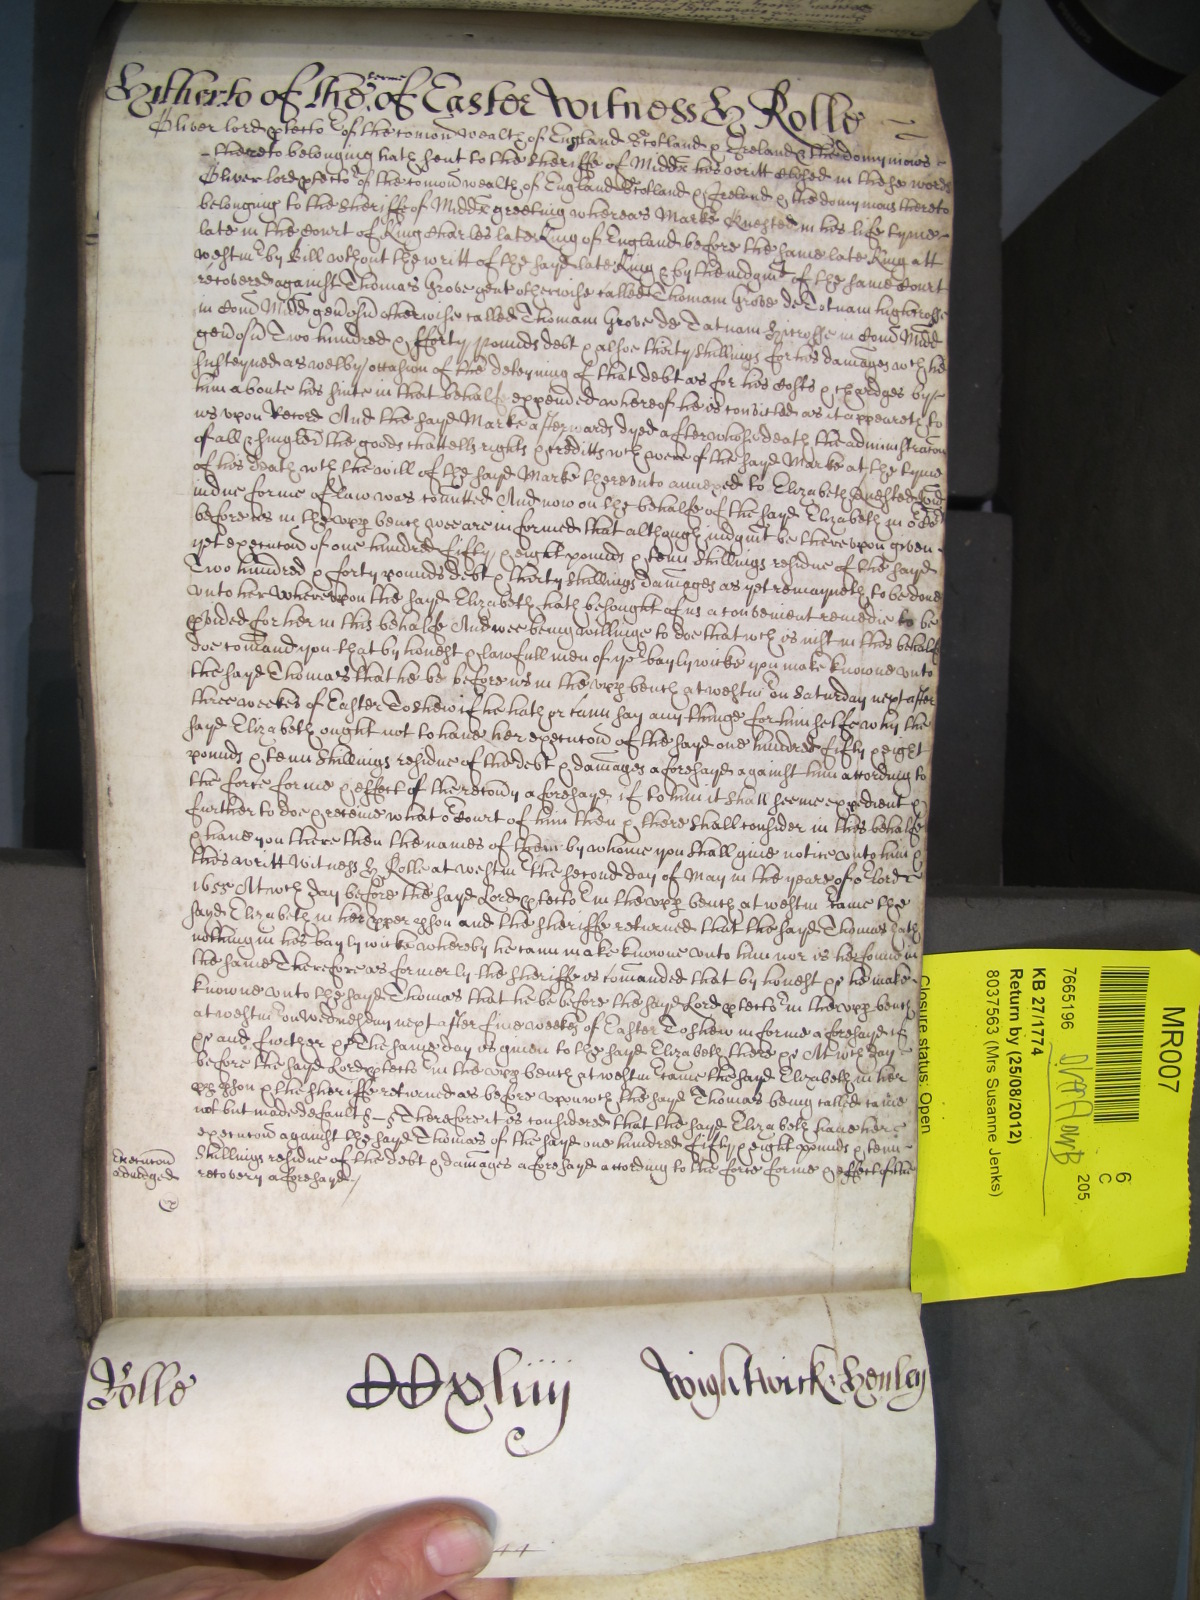 Hitherto of the terme of Easter Witness H Rolle
Oliver lord ptector of the comon wealth of England Scotland & Ireland & the domynions
thereto belonging hath sent to the Sheriffe of Midds his writt closed in these words
Oliver lord ptector of the comon wealth of England Scotland & Ireland & the domynions thereto
belonging to the Sheriff of Midds greeting whereas Marke in his life tyme
late in the Court of King Charles late King of England before the same late King att
westmr by Bill without the writt of the sayd late King & by the iudgmt of the same Court
recovered against Thomas Grove gent otherwise called Thomam Grove de Totnam highcrosse
in Com Midd genosu otherwise called Thomam Grove de Tatnam Hicrosse in Com Midd
genosu Two hundred & fforty pounds debt & alsoe thirty shillings for his damages wch he
susteyned as well by occasion of the deteyning of that debt as for his Costs & chardges by
him aboute his suite in that behalf expended whereof he is convicted as it appeareth to
us upon Record And the sayd Marke afterwards dyed after whose death the administracon
of all & singler the goods chattells rights & creditts wch were of the sayd Marke at the tyme
of his death wth the will of the sayd Marke thereunto annexed to Elizabeth
in due forme of law was comitted And now on the behalfe of the sayd Elizabeth in
before us in the upp bench wee are informed that although iudgmt be thereupon given
yet execucon of one hundred fifty & eight pounds & tenn shillings residue of the sayd
Two hundred & forty pounds debt & thirty shillings damages as yet remayneth to be done
unto her whereupon the sayd Elizabeth hath besought of us a convenient remedie to be
pvided for her in this behalfe And wee being willinge to doe that wch is iust in this behalf
doe comand you that by honest & lawfull men of yor baylywicke you make knowne unto
the sayd Thomas that he be before us in the upp bench at westmr on Saturday next after
three weekes of Easter To shew if he hath or cann say any thinge for himselfe why the
sayd Elizabeth ought not to have her execucon of the sayd one hundred fifty & eight
pounds & tenn shillings residue of the debt & damages aforesayd against him according to
the force forme & effect of the recovy aforesayd if to him it shall seeme expedient &
further to doe & receive what or Court of him then & there shall consider in this behalfe
& have you there then the names of them by whome you shall give notice unto him &
this writt Witness H Rolle at westmr the second day of May in the yeare of or lord
1655 At wch day before the sayd Lord ptector in the upp bench at westmr came the
sayd Elizabeth in her pper pson and the Sheriffe returned that the sayd Thomas hath
nothing in his baylywicke whereby he cann make knowne unto him nor is he found in
the same Therefore as formerly the Sheriffe is comanded that by honest &c he make
knowne unto the sayd Thomas that he be before the sayd Lord ptector in the upp bench
at westmr on Wednesday next after five weekes of Easter To shew in forme aforesayd if
&c and further &c The same day is given to the sayd Elizabeth there &c At wch day
before the sayd Lord ptector in the upp bench at westmr came the sayd Elizabeth in her
pp pson & the Sheriffe returned as before upon wch the sayd Thomas being called came
not but made default Therefore it is considered that the sayd Elizabeth have her
execucon against the sayd Thomas of the sayd one hundred fifty & eight pounds & tenn
shillings residue of the debt & damages aforesayd according to the force forme & effect of the
recovery aforesayd
Execucon
adiudged
Rolle
Wightwick: Henley
MR007
6
C
205
7665196
KB 27/1774
Return by (25/08/2012)
8037563 (Mrs Susanne Jenks)
Closure status: Open